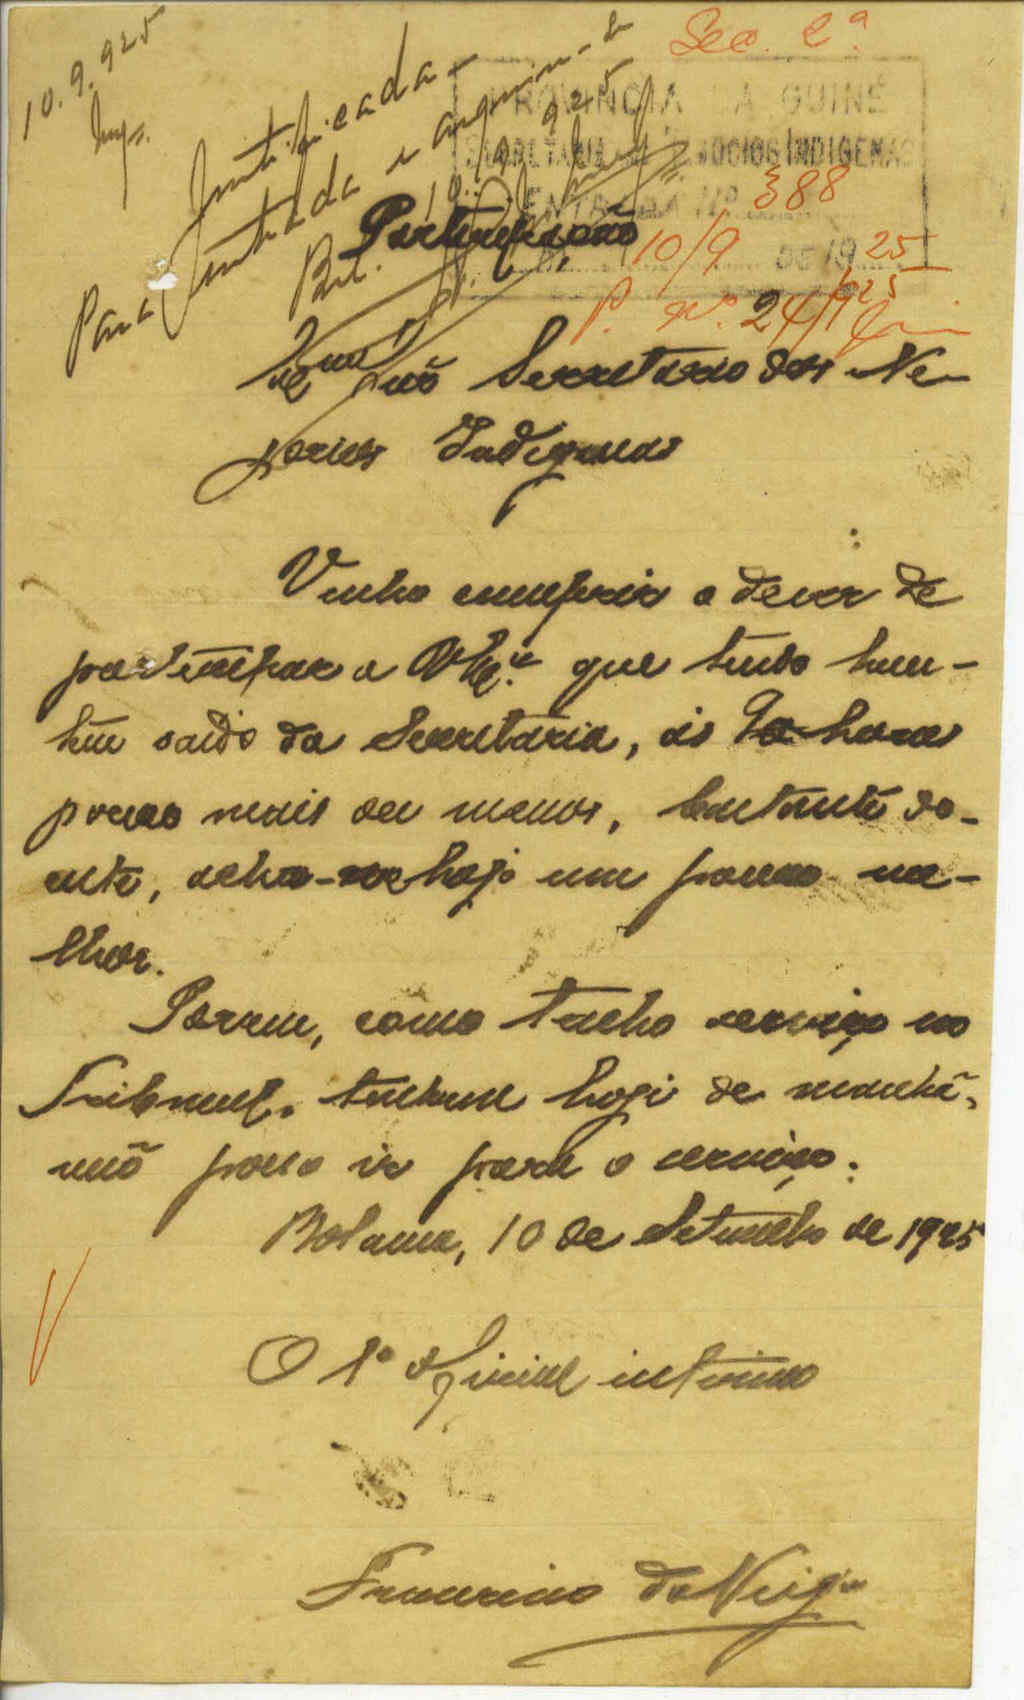 10.9.925
Sec. 2ª
Justificada
Para juntada e arquive-se
Bol. 10.9.925
PROVINCIA DA GUINÉ
SECRETARIA NEGOCIOS INDIGENAS
ENTRADA Nº 388
10/9 DE 1925
P. nº 24/925
Participação
Secretario dos Ne-
gocios Indigenas
Venho cumprir o dever de
participar a V. Exª que tendo hon-
tem saido da Secretaria, ás horas
pouco mais ou menos, bastante do-
ente, acho-me hoje um pouco me-
lhor.
Porem, como tenho serviço no
Tribunal, tambem hoje de manhã,
não posso ir para o serviço.
Bolama, 10 de Setembro de 1925
O 1º oficial interino
da Veiga